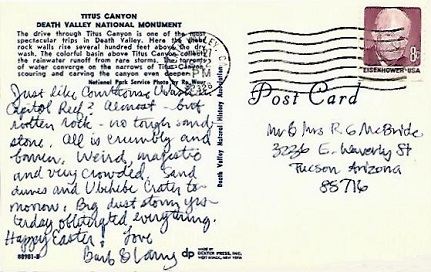 TITUS CANYON
DEATH VALLEY NATIONAL MONUMENT
The drive through Titus Canyon is one of the most
spectacular trips in Death Valley. Here the sheer
rock walls rise several hundred feet above the dry
wash. The colorful basin above Titus Canyon collects
the rainwater runoff from rare storms. The torrents
of water converge on the narrows of Titus Canyon
scouring and carving the canyon even deeper.
National Park Service Photo by
Just like Courthouse Wash
Capitol Reef? Almost - but
rotten rock - no tough sand
stone. All is crumbly and
barren, Weird, majestic
and very crowded. Sand
dunes and Ubehebe Crater to
morrow. Big dust storm yes-
terday obliterated everything.
Happy Easter! Love
Barb &
88901-B
Death Valley Natural History Association
PM
dp
MADE BY
DEXTER PRESS, INC.
WEST NYACK, NEW YORK
8¢
EISENHOWER·USA
Post Card
Mr & Mrs R G McBride
3236 E. Waverly St
Tucson Arizona
85716